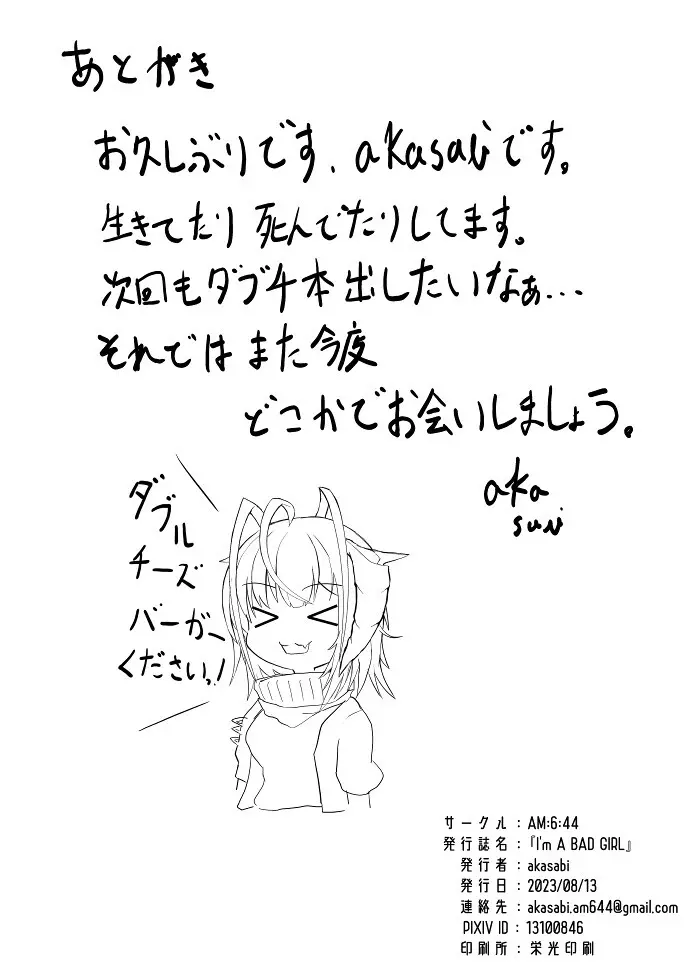 あとがき
お久しぶりです、akasabiです。
生きてたり死んでたりしてます。
次回もダブチ本出したいなぁ...
それではまた今度
どこかでお会いしましょう。
aka
sabi
ダブル
チーズ
バーガー
ください!
サークル : AM:6:44
発行誌名 : 『I'm A BAD GIRL』
発行者 : akasabi
発行日 : 2023/08/13
連絡先 : akasabi.am644@gmail.com
PIXIV ID : 13100846
印刷所 : 栄光印刷